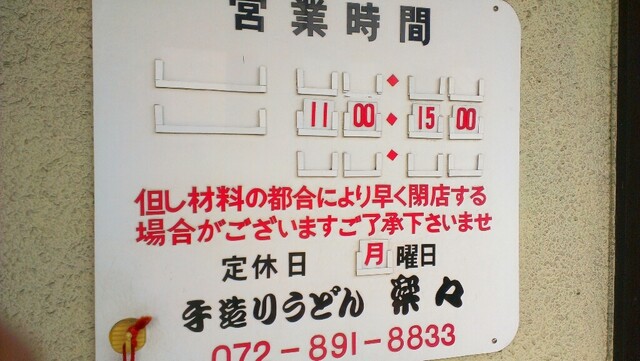 営業時間
11 00 ◆ 15 00
但し材料の都合により早く閉店する
場合がございますご了承下さいませ
定休日 月曜日
手造りうどん 粲々
072-891-8833